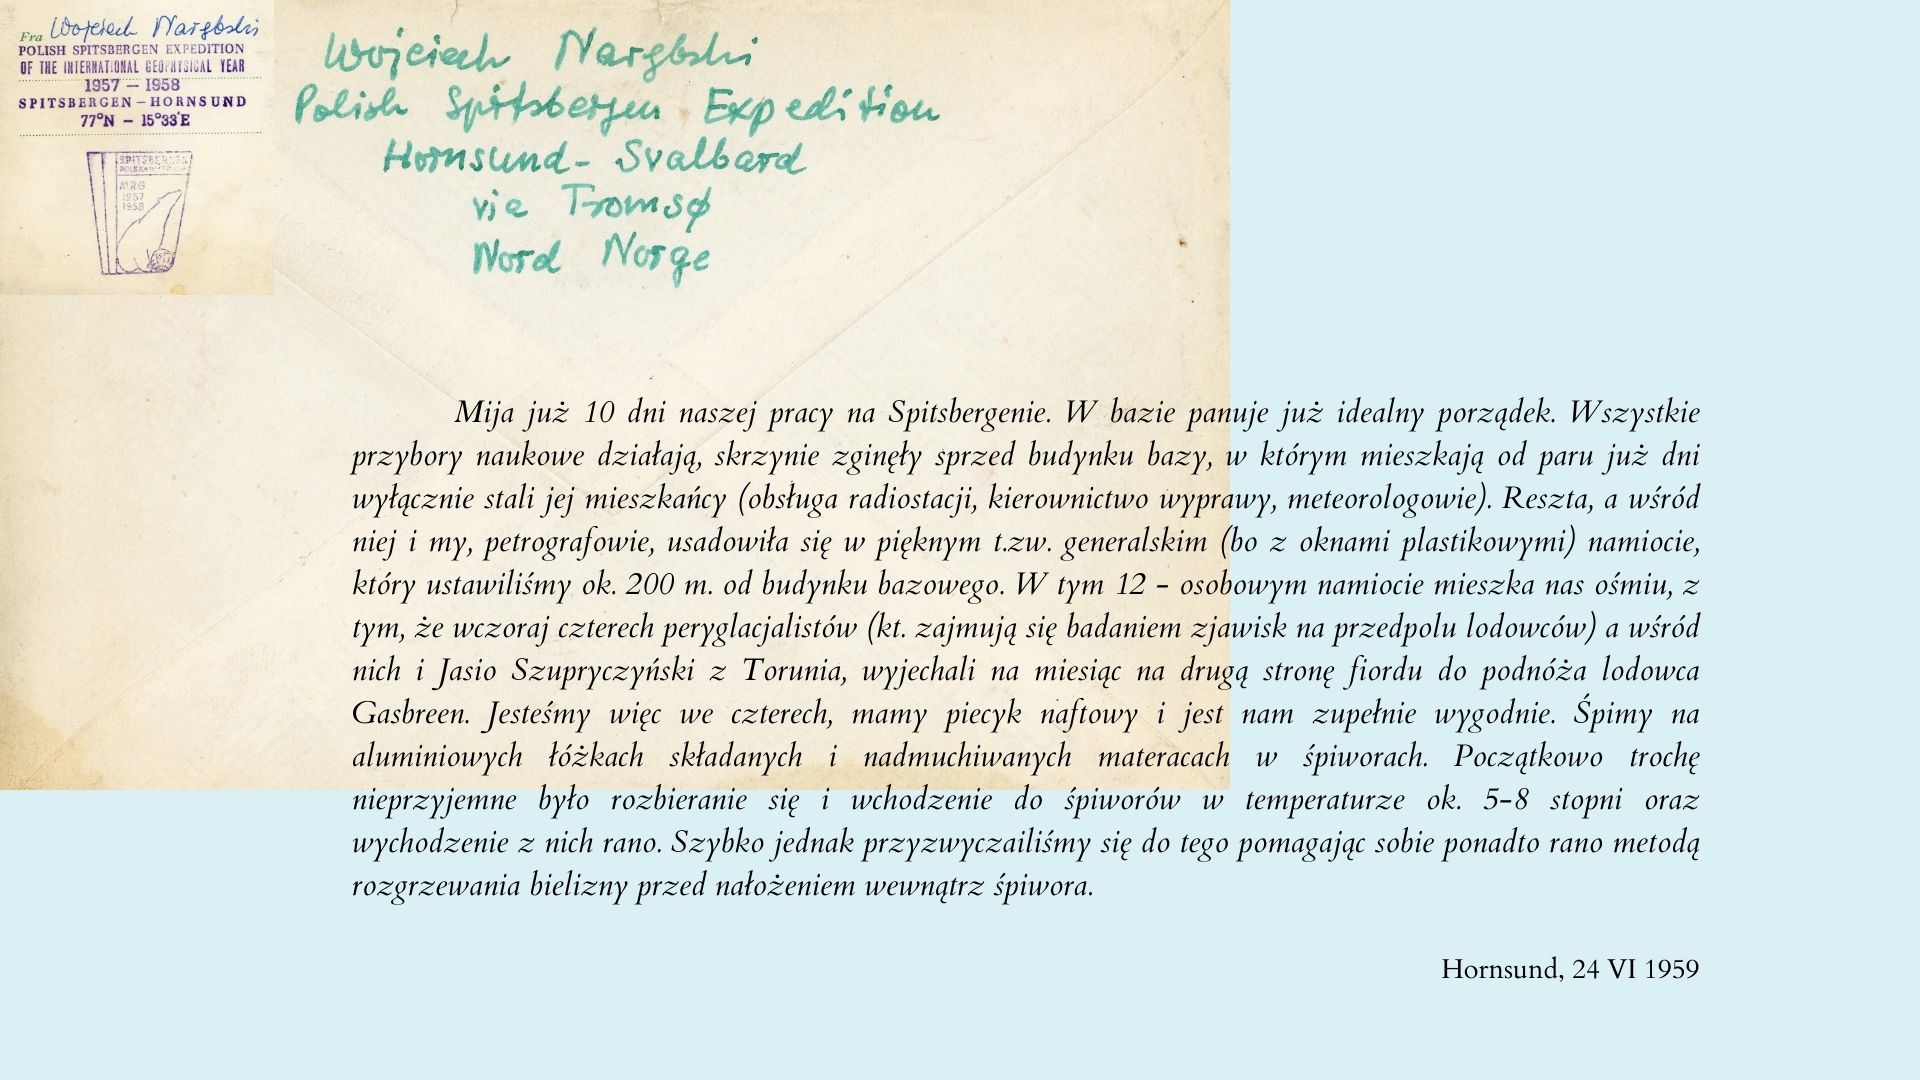 Fra Wojciech Narębski
POLISH SPITSBERGEN EXPEDITION
OF THE INTERNATIONAL GEOPHYSICAL YEAR
1957 – 1958
SPITSBERGEN – HORNSUND
77°N – 15°33'E
SPITSBERGEN
MRG
1957
1958
Wojciech Narębski
Polish Spitsbergen Expedition
Hornsund - Svalbard
via Tromsø
Nord Norge
Mija już 10 dni naszej pracy na Spitsbergenie. W bazie panuje już idealny porządek. Wszystkie
przybory naukowe działają, skrzynie zginęły sprzed budynku bazy, w którym mieszkają od paru już dni
wyłącznie stali jej mieszkańcy (obsługa radiostacji, kierownictwo wyprawy, meteorologowie). Reszta, a wśród
niej i my, petrografowie, usadowiła się w pięknym t.zw. generalskim (bo z oknami plastikowymi) namiocie,
który ustawiliśmy ok. 200 m. od budynku bazowego. W tym 12 - osobowym namiocie mieszka nas ośmiu, z
tym, że wczoraj czterech peryglacjalistów (kt. zajmują się badaniem zjawisk na przedpolu lodowców) a wśród
nich i Jasio Szupryczyński z Torunia, wyjechali na miesiąc na drugą stronę fiordu do podnóża lodowca
Gasbreen. Jesteśmy więc we czterech, mamy piecyk naftowy i jest nam zupełnie wygodnie. Śpimy na
aluminiowych łóżkach składanych i nadmuchiwanych materacach w śpiworach. Początkowo trochę
nieprzyjemne było rozbieranie się i wchodzenie do śpiworów w temperaturze ok. 5-8 stopni oraz
wychodzenie z nich rano. Szybko jednak przyzwyczailiśmy się do tego pomagając sobie ponadto rano metodą
rozgrzewania bielizny przed nałożeniem wewnątrz śpiwora.
Hornsund, 24 VI 1959